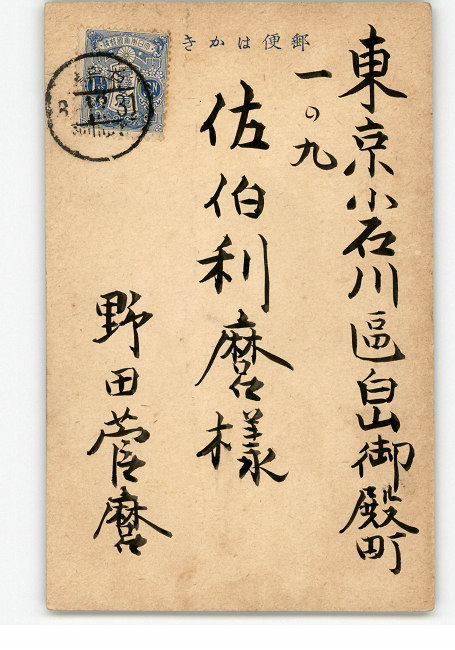 きかは便郵
東京小石川區白山御殿町
一の九
佐伯利麿様
野田菅麿